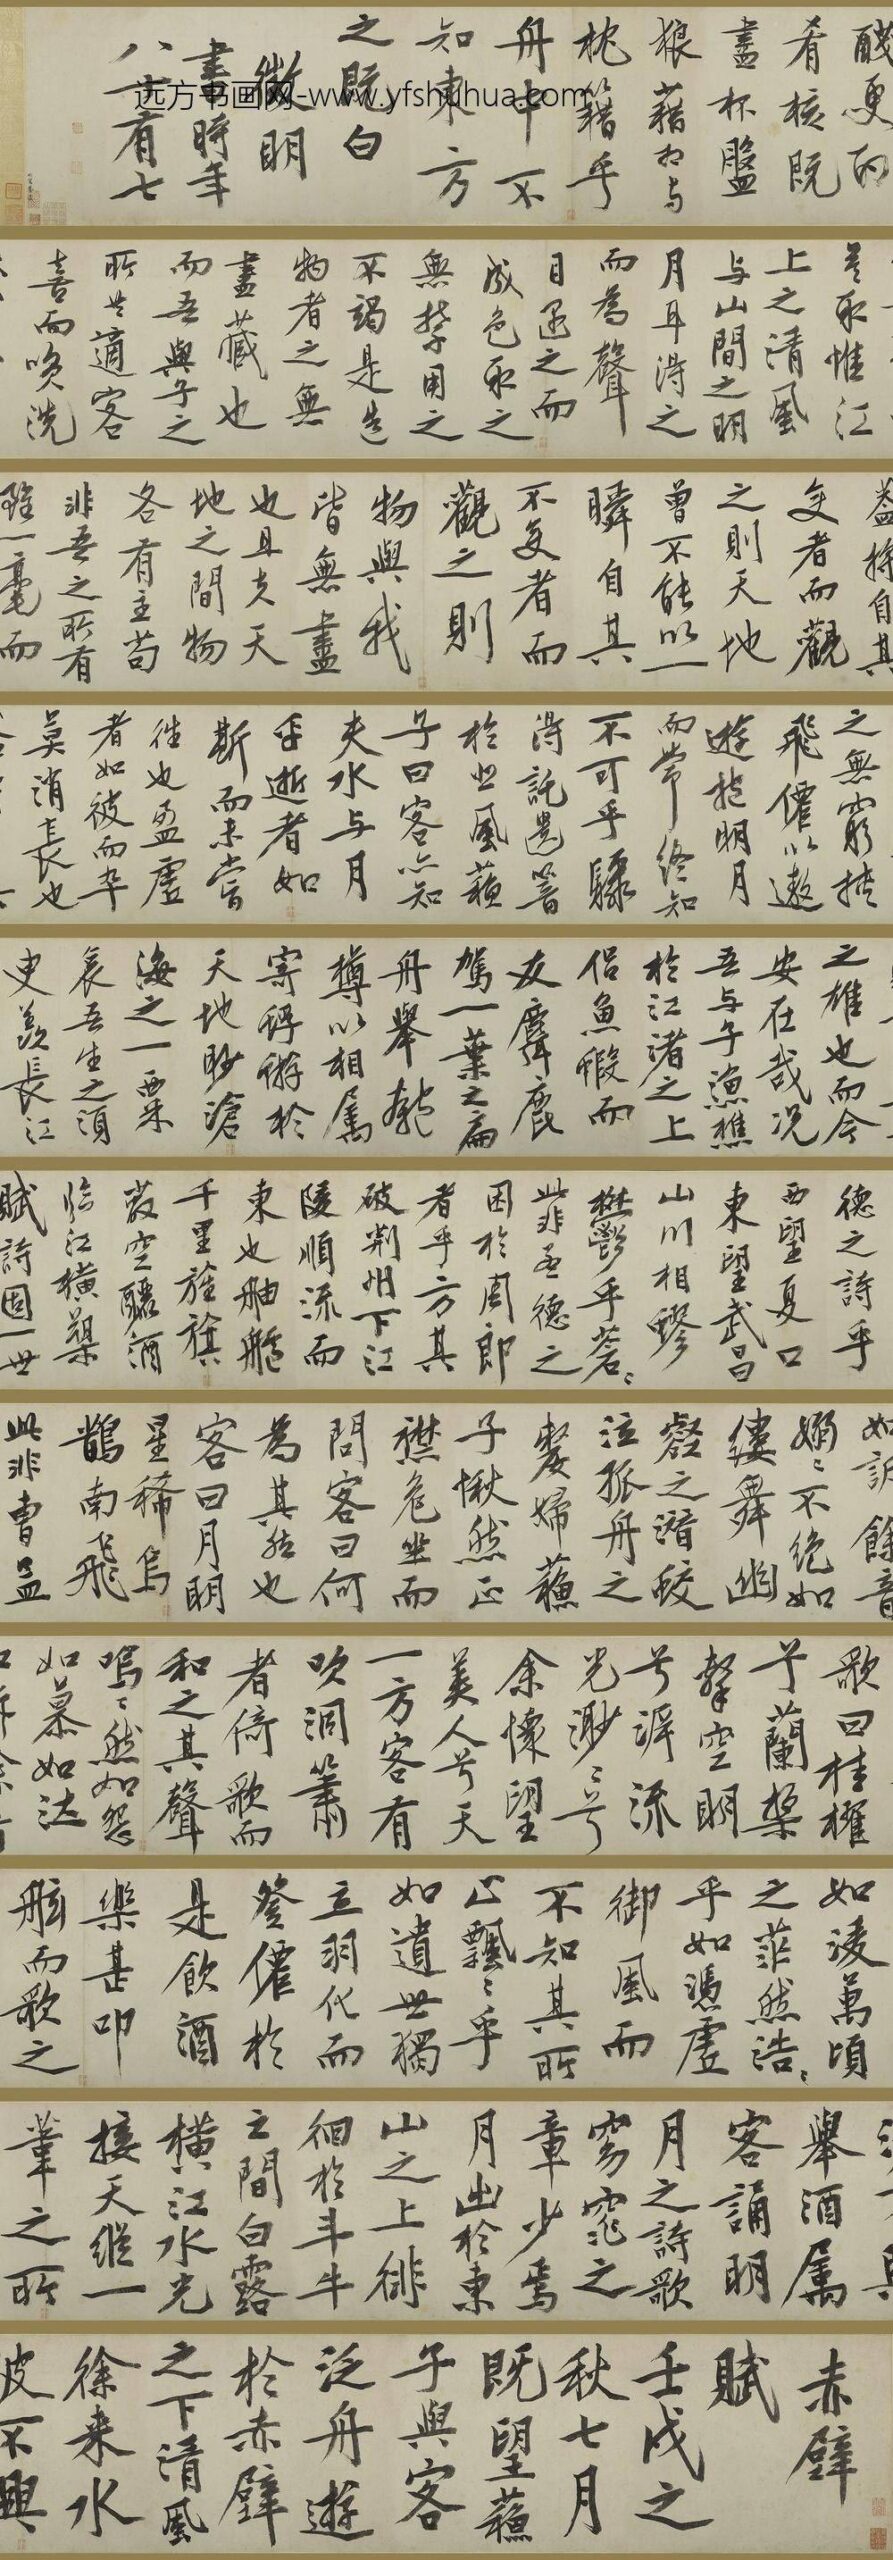 赤壁
賦
壬戌之
秋七月
既望蘇
子與客
泛舟遊
於赤壁
之下清風
徐来水
波不興
舉酒屬
客誦明
月之詩歌
窈窕之
章少焉
月出於東
山之上徘
徊於斗牛
之間白露
橫江水光
接天縱一
葦之所
如淩萬頃
之茫然浩〻
乎如憑虛
御風而
不知其所
止飄〻乎
如遺世獨
立羽化而
登僊於
是飲酒
樂甚叩
舷而歌之
歌曰桂櫂
兮蘭槳
擊空明
兮泝流
光渺〻兮
余懷望
美人兮天
一方客有
吹洞簫
者倚歌而
和之其聲
嗚〻然如怨
如慕如泣
如訴餘音
嫋〻不絕如
縷舞幽
壑之潛蛟
泣孤舟之
嫠婦蘇
子愀然正
襟危坐而
問客曰何
為其然也
客曰月明
星稀烏
鵲南飛
此非曹孟
德之詩乎
西望夏口
東望武昌
山川相繆
鬱乎蒼〻
此非孟德之
困於周郎
者乎方其
破荆州下江
陵順流而
東也舳艫
千里旌旗
蔽空釃酒
臨江橫槊
賦詩固一世
之雄也而今
安在哉況
吾與子漁樵
於江渚之上
侶魚蝦而
友麋鹿
駕一葉之扁
舟舉匏
樽以相屬
寄蜉蝣於
天地眇滄
海之一粟
哀吾生之須
臾羨長江
之無窮挾
飛僊以遨
遊抱明月
而常終知
不可乎驟
得託遺響
於悲風蘇
子曰客亦知
夫水与月
乎逝者如
斯而未嘗
往也盈虛
者如彼而卒
莫消長也
蓋將自其
变者而觀
之則天地
曾不能以一
瞬自其
不变者而
觀之則
物與我
皆無盡
也且夫天
地之間物
各有主苟
非吾之所有
雖一毫而
莫取惟江
上之清風
与山間之明
月耳得之
而為聲
目遇之而
成色取之
無禁用之
不竭是造
物者之無
盡藏也
而吾與子之
所共適客
喜而笑洗
盞更酌
肴核既
盡杯盤
狼藉相与
枕籍乎
舟中不
知東方
之既白
徵明
書時年
八十有七
远方书画网-www.yfshuhua.com